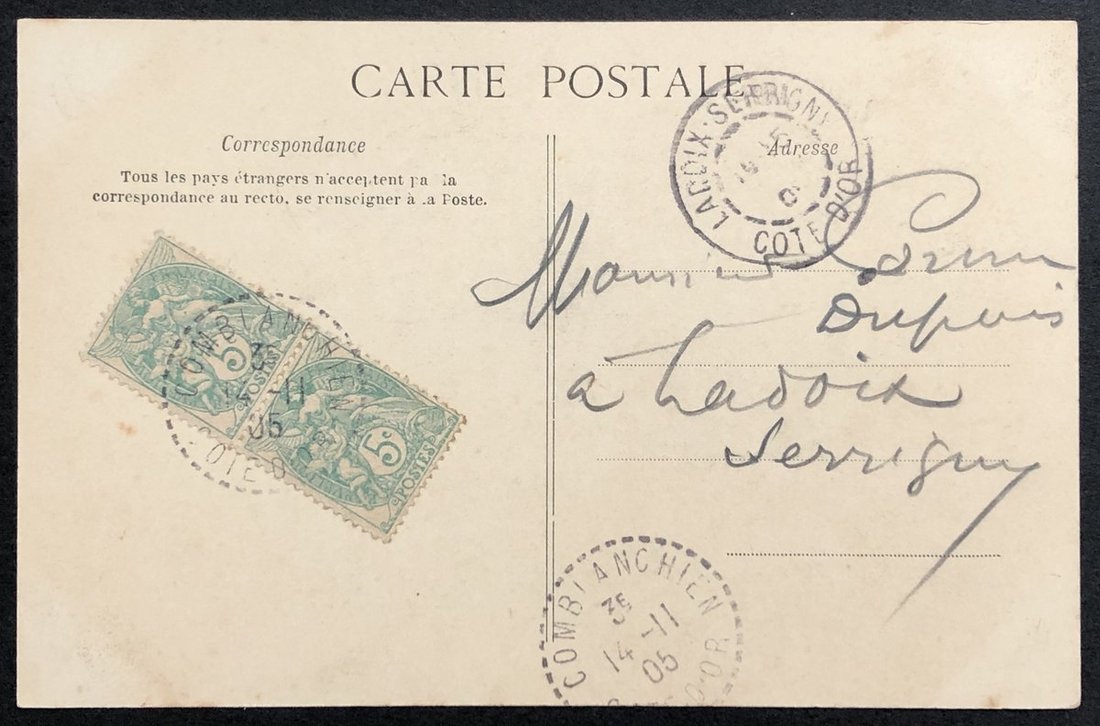 CARTE POSTALE
Correspondance
Tous les pays étrangers n'acceptent pa la
correspondance au recto, se renseigner à la Poste.
5c
POSTES
5c
POSTES
COMBLANCHIEN
3E
14 -11
05
COTE D'OR
LADOIX-SERRIGNY
COTE D'OR
Adresse
Monsieur
Dupuis
à Ladoix
Serrigny
COMBLANCHIEN
3E
14 -11
05
D'OR